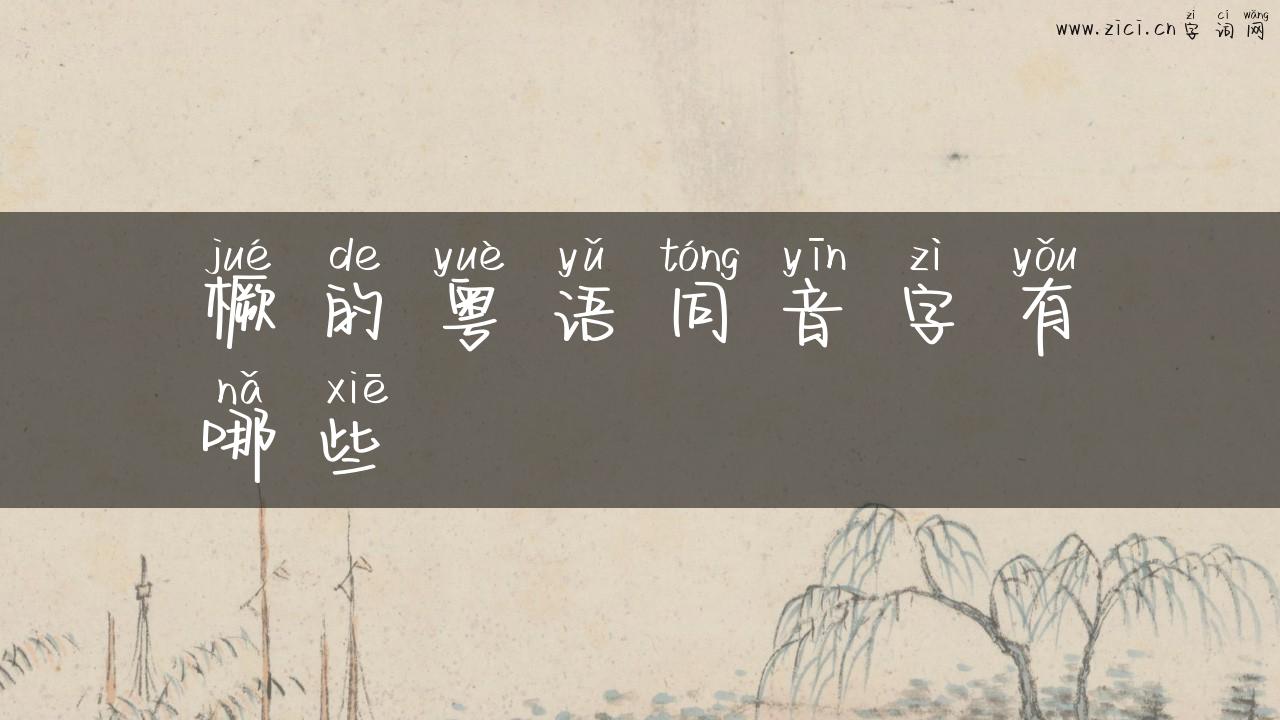 zì cí wǎng
www.zici.cn字词网
jué de yuè yǔ tóng yīn zì yǒu
橛的粤语同音字有
nǎ xiē
哪些